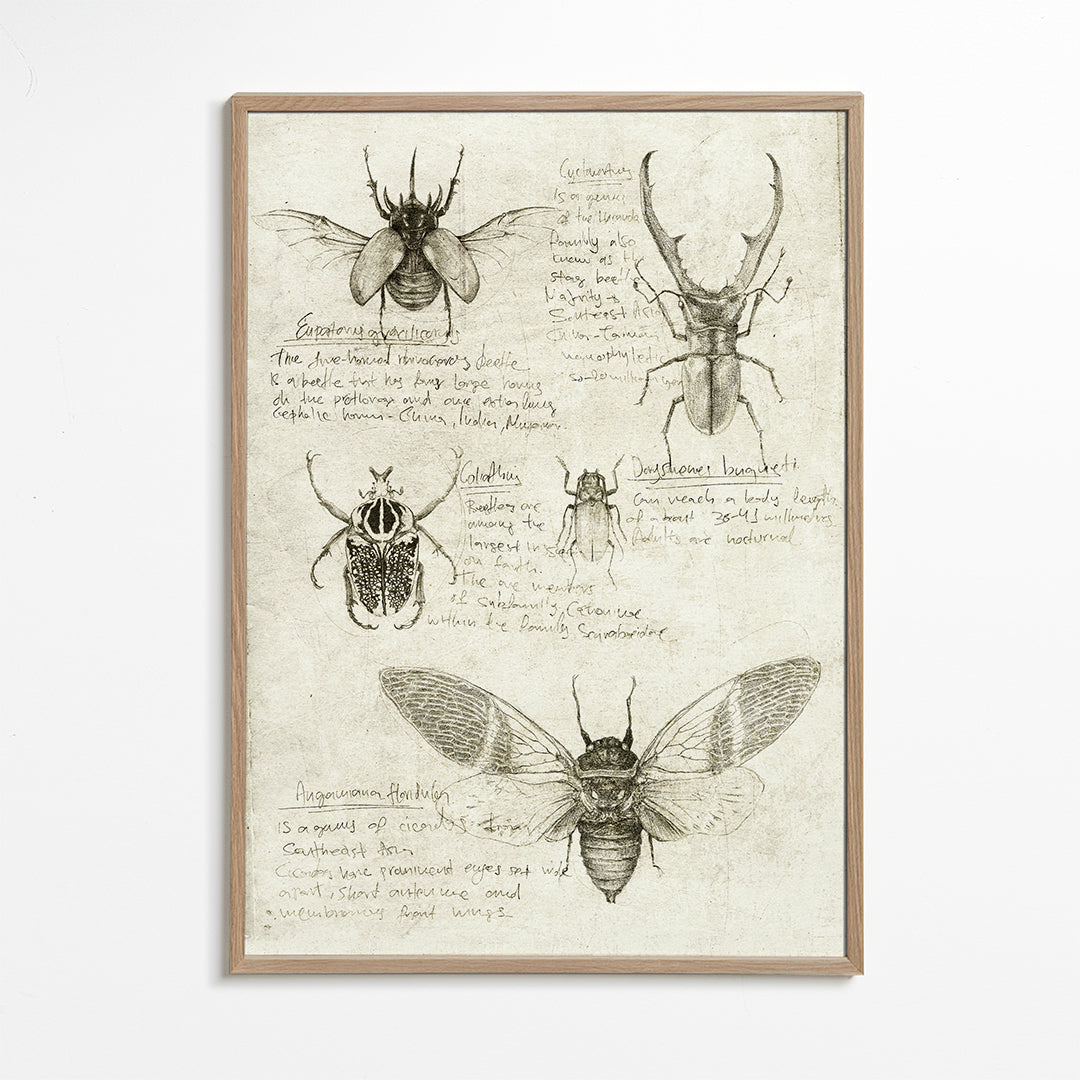 Eupatorus gracilicornis
The five-horned rhinoceros beetle
is a beetle that has four large horns
on the prothorax and one extra long
Cephalic horns - China, India, Myanmar.
Cyclommatus
is a genus
of the Lucanidae
Family also
known as the
stag beetle
Majority
Southeast Asia
Goliathus
Beetles are
among the
largest insects
on Earth.
The are members
of subfamily Cetoniinae
within the family Scarabaeidae
Doryschemes buqueti
Can reach a body length
of about 36-41 millimetres
Adults are nocturnal
Angamiana floridula
is a genus of cicadas from
Southeast Asia
Cicadas have prominent eyes set wide
apart, short antennae and
membranous front wings